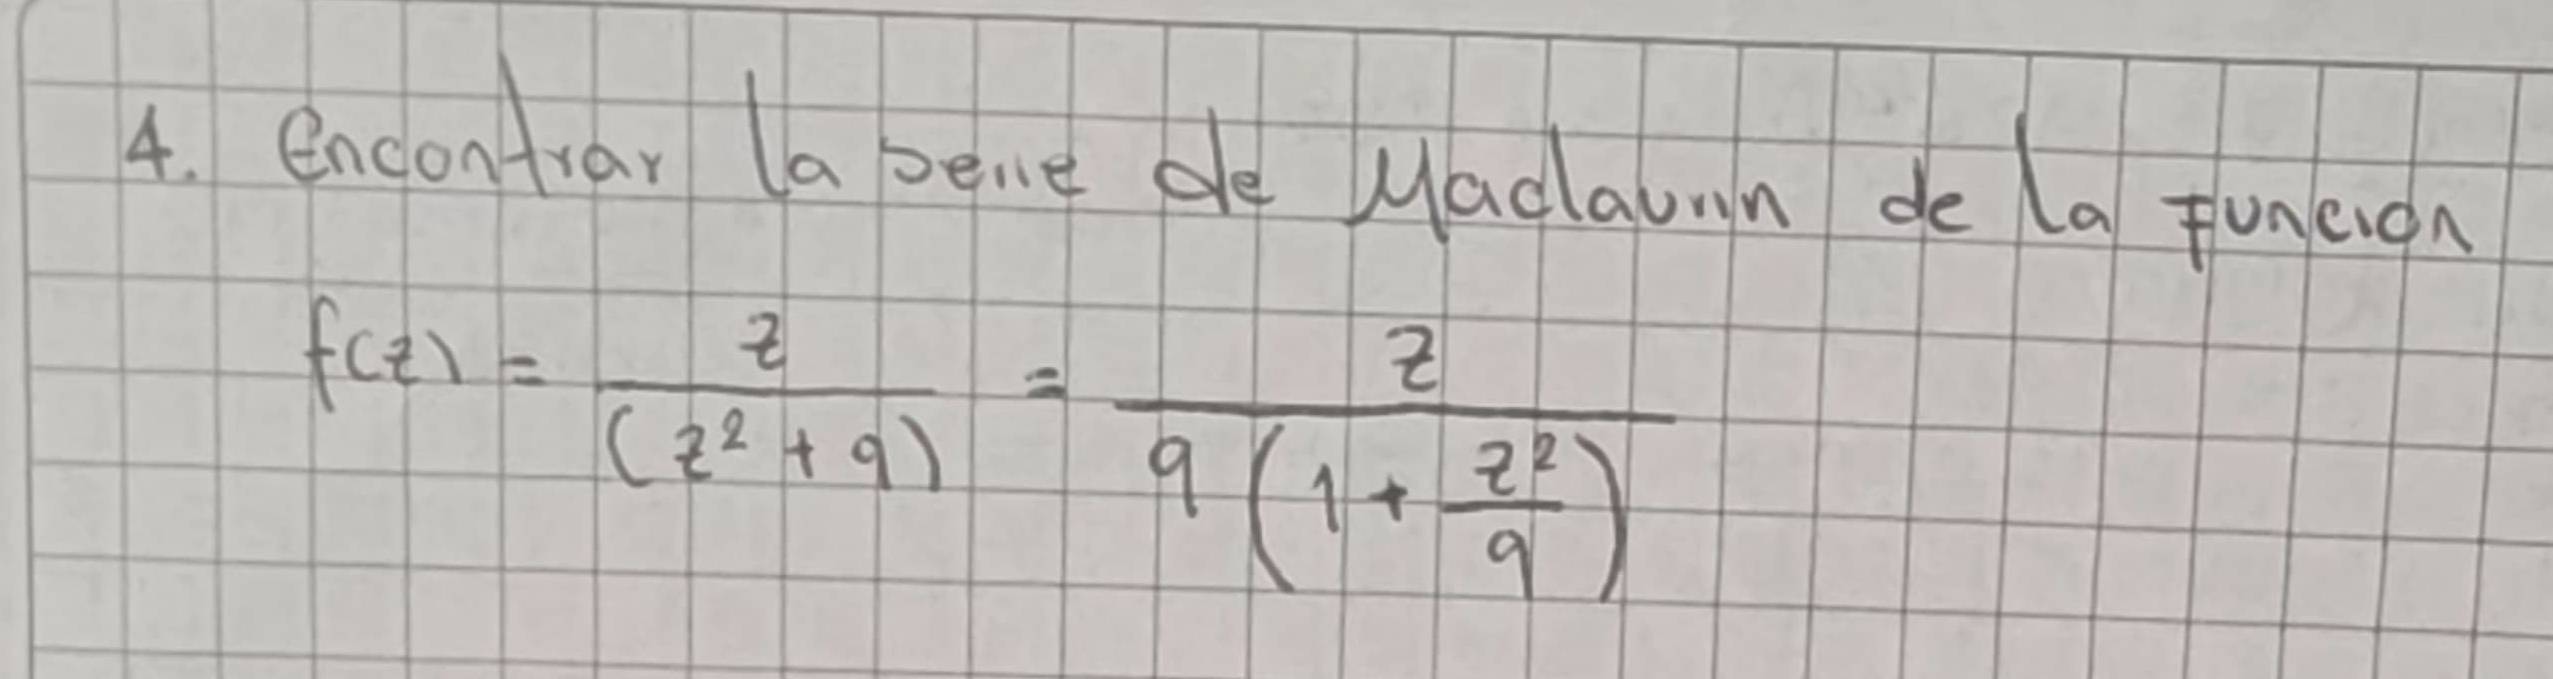 4. Encontrar la serie de Maclaurin de la función
f(z) = z / (z² + 9) = z / 9 (1 + z²/9)